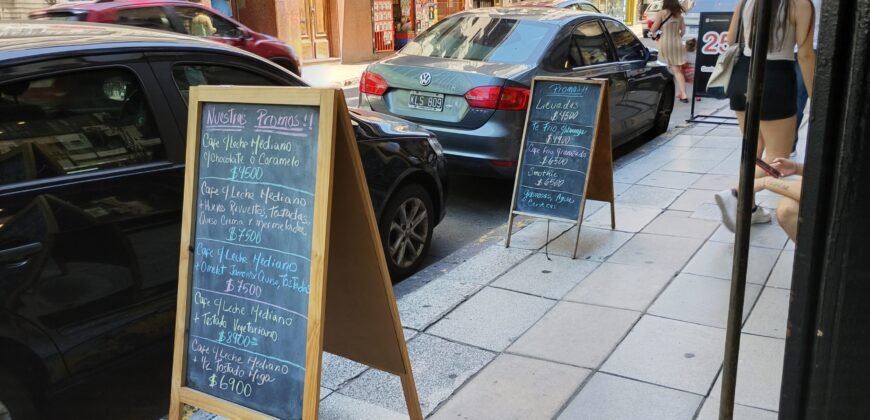 Nuestras Promos!!
Cafe c/Leche Mediano
c/chocolate o Caramelo
$4500
Cafe c/Leche Mediano
+ Huevo Revueltos, Tostadas
Queso Crema y mermeladas
$7500
Cafe c/Leche Mediano
+ Omelet Jamon y Queso, Tostadas
$7500
Cafe c/Leche Mediano
+ Tostado Vegetariano
$8900=
Cafe c/Leche Mediano
+ 1/2 Tostado Miga
$6900
Promo!!
Licuados
$4500
Te Frio
$4900
Cafe Frio
$6500
Smothie
$6500
Gaseosas, Agua
KLS 809
25